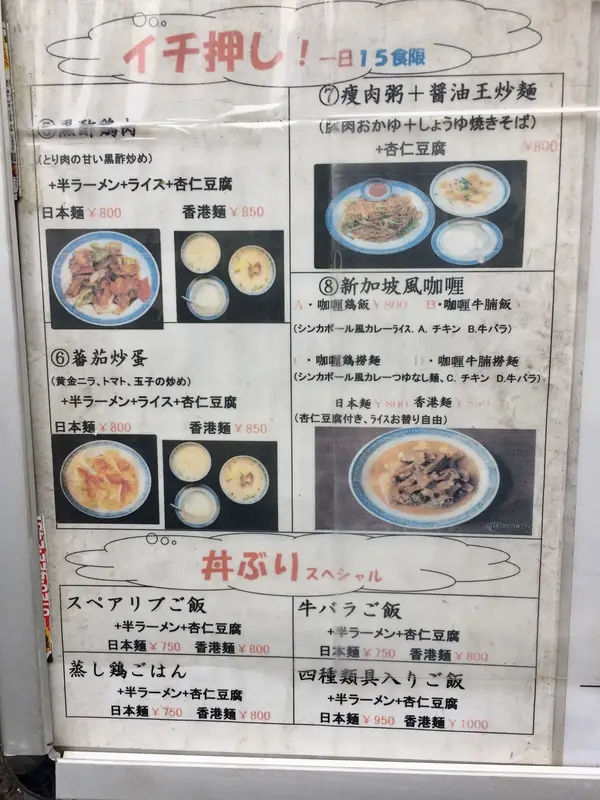 イチ押し!一日15食限
黒酢鶏肉
(とり肉の甘い黒酢炒め)
+半ラーメン+ライス+杏仁豆腐
日本麺¥800 香港麺¥850
⑥蕃茄炒蛋
(黄金ニラ、トマト、玉子の炒め)
+半ラーメン+ライス+杏仁豆腐
日本麺¥800 香港麺¥850
⑦瘦肉粥+醤油王炒麺
(豚肉おかゆ+しょうゆ焼きそば)
+杏仁豆腐 ¥800
⑧新加坡風咖喱
A・咖喱鶏飯¥800 B・咖喱牛腩飯
(シンカポール風カレーライス. A. チキン B.牛バラ)
・咖喱鶏撈麺 D・咖喱牛腩撈麺
(シンカポール風カレーつゆなし麺、C. チキン D.牛バラ)
日本麺¥800 香港麺¥850
(杏仁豆腐付き、ライスお替り自由)
丼ぶりスペシャル
スペアリブご飯
+半ラーメン+杏仁豆腐
日本麺¥750 香港麺¥800
牛バラご飯
+半ラーメン+杏仁豆腐
日本麺¥750 香港麺¥800
蒸し鶏ごはん
+半ラーメン+杏仁豆腐
日本麺¥750 香港麺¥800
四種類具入りご飯
+半ラーメン+杏仁豆腐
日本麺¥950 香港麺¥1000